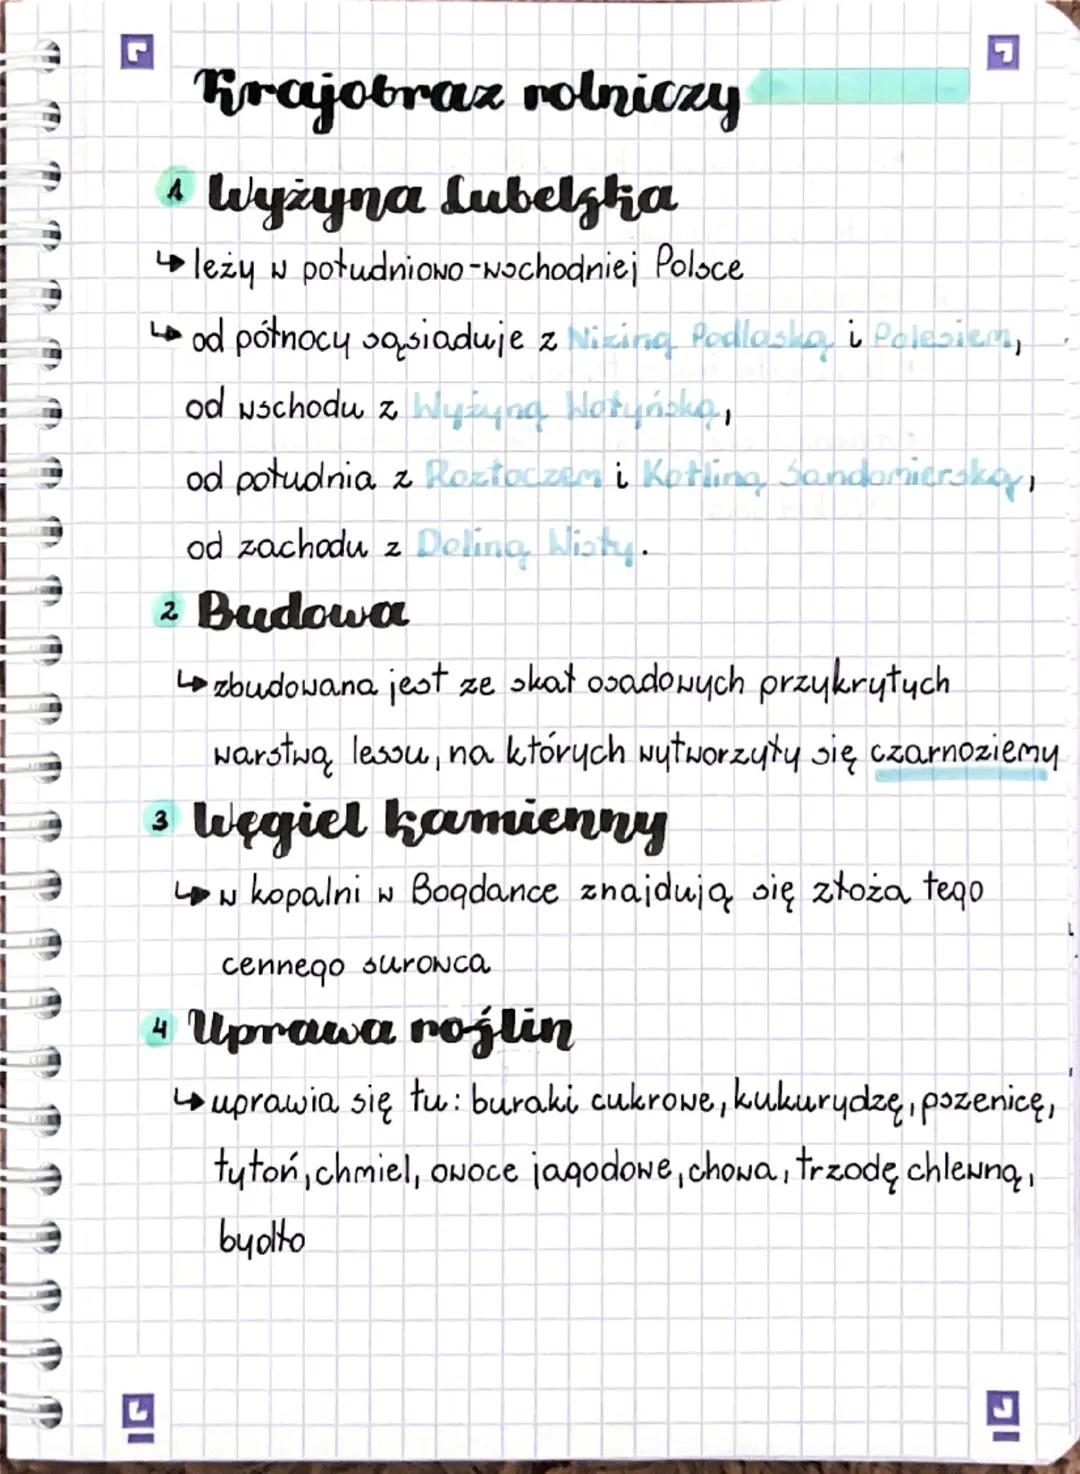 Krajobraz rolniczy
1 Wyżyna Lubelska
↳ leży w południowo-wschodniej Polsce
↳ od północy sąsiaduje z Niziną Podlaską i Polesiem,
od wschodu z Wyżyną Wołyńską,
od południa z Roztoczem i Kotliną Sandomierską,
od zachodu z Doliną Wisły.
2 Budowa
↳ zbudowana jest ze skał osadowych przykrytych
warstwą lessu, na których wytworzyły się czarnoziemy
3 Węgiel kamienny
↳ w kopalni w Bogdance znajdują się złoża tego
cennego surowca
4 Uprawa roślin
↳ uprawia się tu: buraki cukrowe, kukurydzę, pszenicę,
tytoń, chmiel, owoce jagodowe, chowa, trzodę chlewną,
bydło